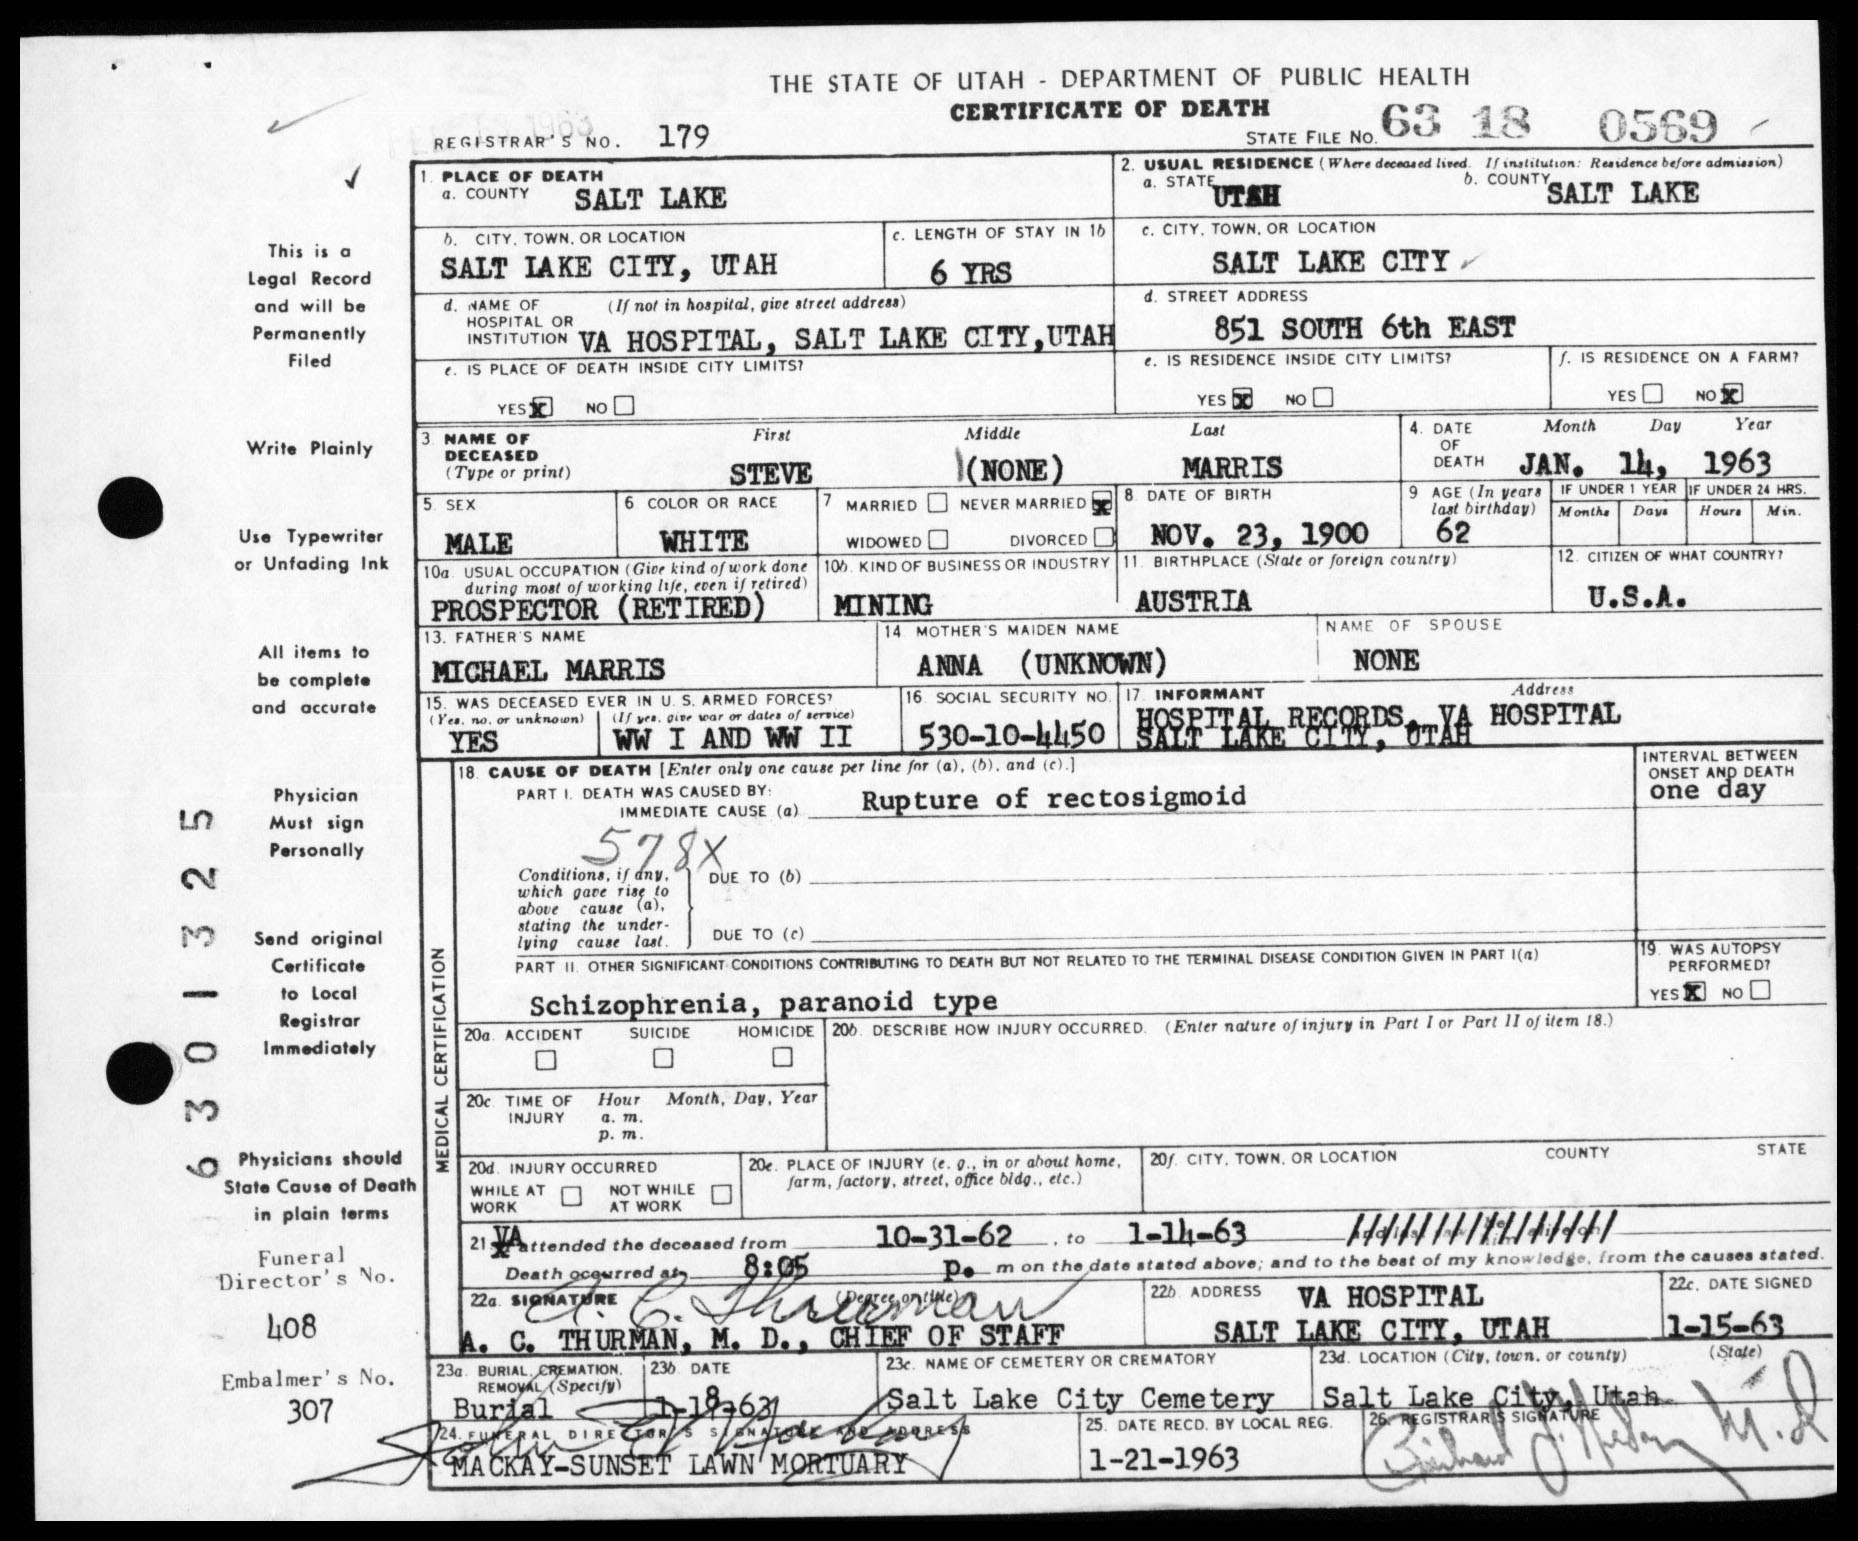 THE STATE OF UTAH - DEPARTMENT OF PUBLIC HEALTH
CERTIFICATE OF DEATH
REGISTRAR'S NO. 179
STATE FILE NO. 63 18 0569
This is a
Legal Record
and will be
Permanently
Filed
Write Plainly
Use Typewriter
or Unfading Ink
All items to
be complete
and accurate
Physician
Must sign
Personally
Send original
Certificate
to Local
Registrar
Immediately
Physicians should
State Cause of Death
in plain terms
Funeral
Director's No.
408
Embalmer's No.
307
6301325
1. PLACE OF DEATH
a. COUNTY SALT LAKE
2. USUAL RESIDENCE (Where deceased lived. If institution: Residence before admission)
a. STATE UTAH b. COUNTY SALT LAKE
b. CITY, TOWN, OR LOCATION
SALT LAKE CITY, UTAH
c. LENGTH OF STAY IN 1b
6 YRS
c. CITY, TOWN, OR LOCATION
SALT LAKE CITY
d. NAME OF (If not in hospital, give street address)
HOSPITAL OR
INSTITUTION VA HOSPITAL, SALT LAKE CITY, UTAH
d. STREET ADDRESS
851 SOUTH 6th EAST
e. IS PLACE OF DEATH INSIDE CITY LIMITS?
YES X NO
e. IS RESIDENCE INSIDE CITY LIMITS?
YES X NO
f. IS RESIDENCE ON A FARM?
YES NO X
3. NAME OF DECEASED (Type or print)
First Middle Last
STEVE (NONE) MARRIS
4. DATE OF DEATH Month Day Year
JAN. 14, 1963
5. SEX
MALE
6 COLOR OR RACE
WHITE
7 MARRIED NEVER MARRIED X
WIDOWED DIVORCED
8. DATE OF BIRTH
NOV. 23, 1900
9 AGE (In years last birthday)
62
IF UNDER 1 YEAR IF UNDER 24 HRS.
Months Days Hours Min.
10a. USUAL OCCUPATION (Give kind of work done
during most of working life, even if retired)
PROSPECTOR (RETIRED)
10b. KIND OF BUSINESS OR INDUSTRY
MINING
11. BIRTHPLACE (State or foreign country)
AUSTRIA
12. CITIZEN OF WHAT COUNTRY?
U.S.A.
13. FATHER'S NAME
MICHAEL MARRIS
14. MOTHER'S MAIDEN NAME
ANNA (UNKNOWN)
NAME OF SPOUSE
NONE
15. WAS DECEASED EVER IN U. S. ARMED FORCES?
(Yes, no, or unknown) (If yes, give war or dates of service)
YES WW I AND WW II
16. SOCIAL SECURITY NO.
530-10-4450
17. INFORMANT Address
HOSPITAL RECORDS, VA HOSPITAL
SALT LAKE CITY, UTAH
MEDICAL CERTIFICATION
18. CAUSE OF DEATH [Enter only one cause per line for (a), (b), and (c).]
PART I. DEATH WAS CAUSED BY:
IMMEDIATE CAUSE (a) Rupture of rectosigmoid
INTERVAL BETWEEN
ONSET AND DEATH
one day
578X
Conditions, if any,
which gave rise to
above cause (a),
stating the under-
lying cause last.
DUE TO (b)
DUE TO (c)
PART II. OTHER SIGNIFICANT CONDITIONS CONTRIBUTING TO DEATH BUT NOT RELATED TO THE TERMINAL DISEASE CONDITION GIVEN IN PART I(a)
Schizophrenia, paranoid type
19. WAS AUTOPSY
PERFORMED?
YES X NO
20a. ACCIDENT SUICIDE HOMICIDE
20b. DESCRIBE HOW INJURY OCCURRED. (Enter nature of injury in Part I or Part II of item 18.)
20c. TIME OF INJURY Hour Month, Day, Year
a. m.
p. m.
20d. INJURY OCCURRED
WHILE AT WORK NOT WHILE AT WORK
20e. PLACE OF INJURY (e. g., in or about home,
farm, factory, street, office bldg., etc.)
20f. CITY, TOWN, OR LOCATION COUNTY STATE
21. VA attended the deceased from 10-31-62, to 1-14-63
Death occurred at 8:05 p. m on the date stated above; and to the best of my knowledge, from the causes stated.
22a. SIGNATURE (Degree or title)
A. C. Thurman
A. C. THURMAN, M. D., CHIEF OF STAFF
22b. ADDRESS VA HOSPITAL
SALT LAKE CITY, UTAH
22c. DATE SIGNED
1-15-63
23a. BURIAL, CREMATION,
REMOVAL (Specify)
Burial
23b. DATE
1-18-63
23c. NAME OF CEMETERY OR CREMATORY
Salt Lake City Cemetery
23d. LOCATION (City, town, or county) (State)
Salt Lake City, Utah
24. FUNERAL DIRECTOR'S SIGNATURE AND ADDRESS
MACKAY-SUNSET LAWN MORTUARY
25. DATE RECD. BY LOCAL REG.
1-21-1963
26. REGISTRAR'S SIGNATURE
M.D